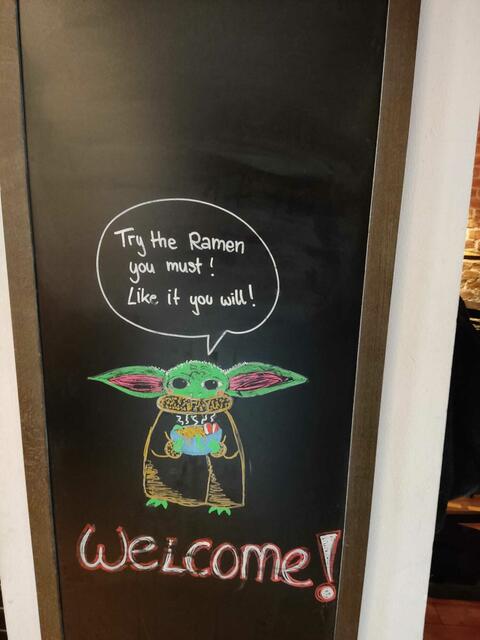 Try the Ramen
you must!
Like it you will!
WELCOME!